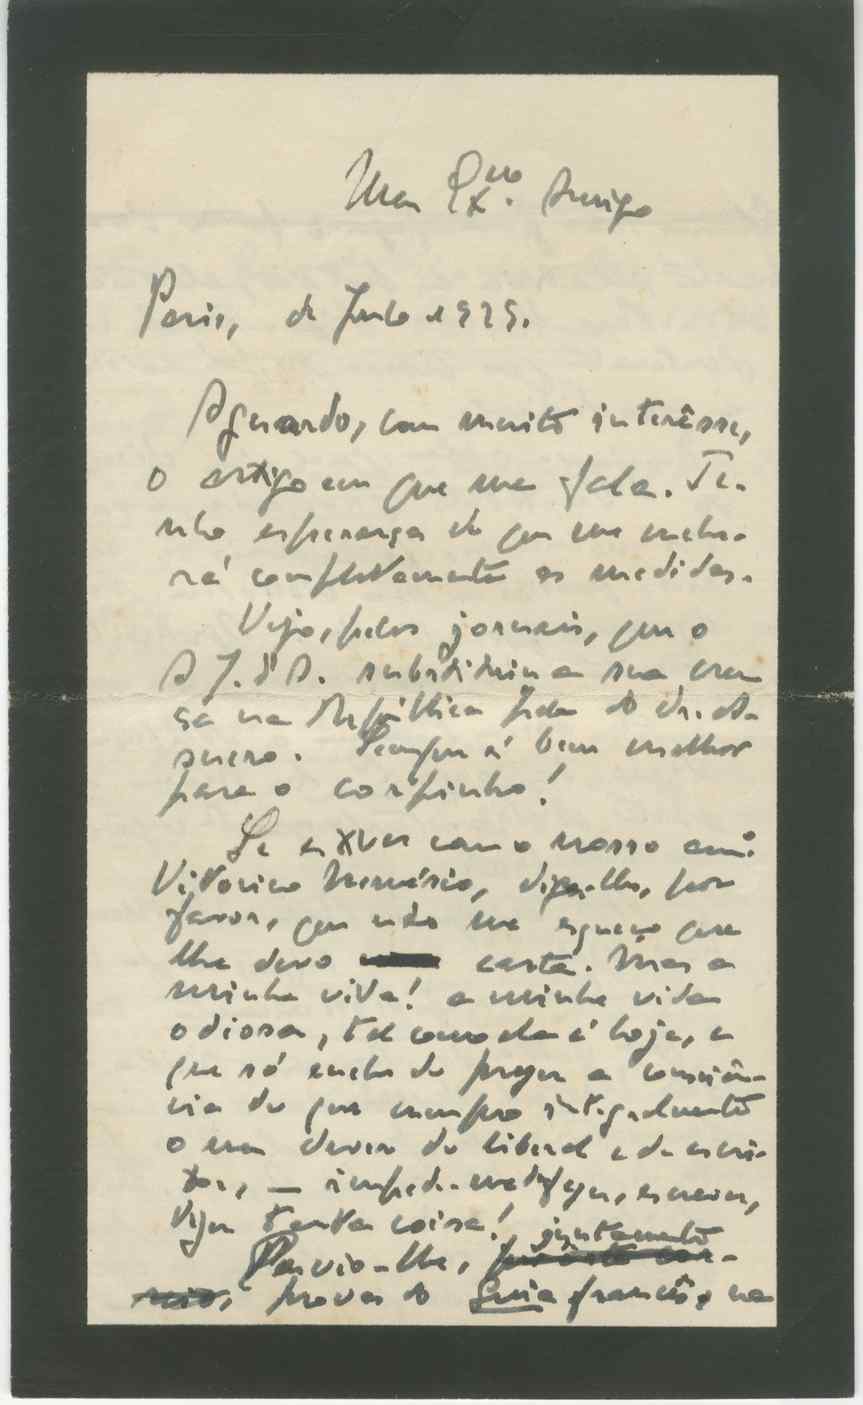 Meu Exmo. Amigo
Paris, de Junho 1929.
Aguardo, com muito interêsse,
o artigo em que me fala. Te-
nho esperança de que me enche-
rá completamente as medidas.
Vejo, pelos jornais, que o
A J. d'A. substituiu a sua cren-
ça na República pela do dr. A-
suero. Sempre é bem melhor
para o corpinho!
Se estiver com o nosso am.º
Vitorino Nemésio, diga-lhe, por
favor, que não me esqueço que
lhe devo carta. Mas a
minha vida! a minha vida
odiosa, tal como ela é hoje, e
que só enche de prazer a consciên-
cia de que cumpro integralmente
o meu dever de liberal e de escri-
tor, — impede-me de ler, escrever,
tanta coisa!
Envio-lhe, juntamente
provas do Guia francês, na